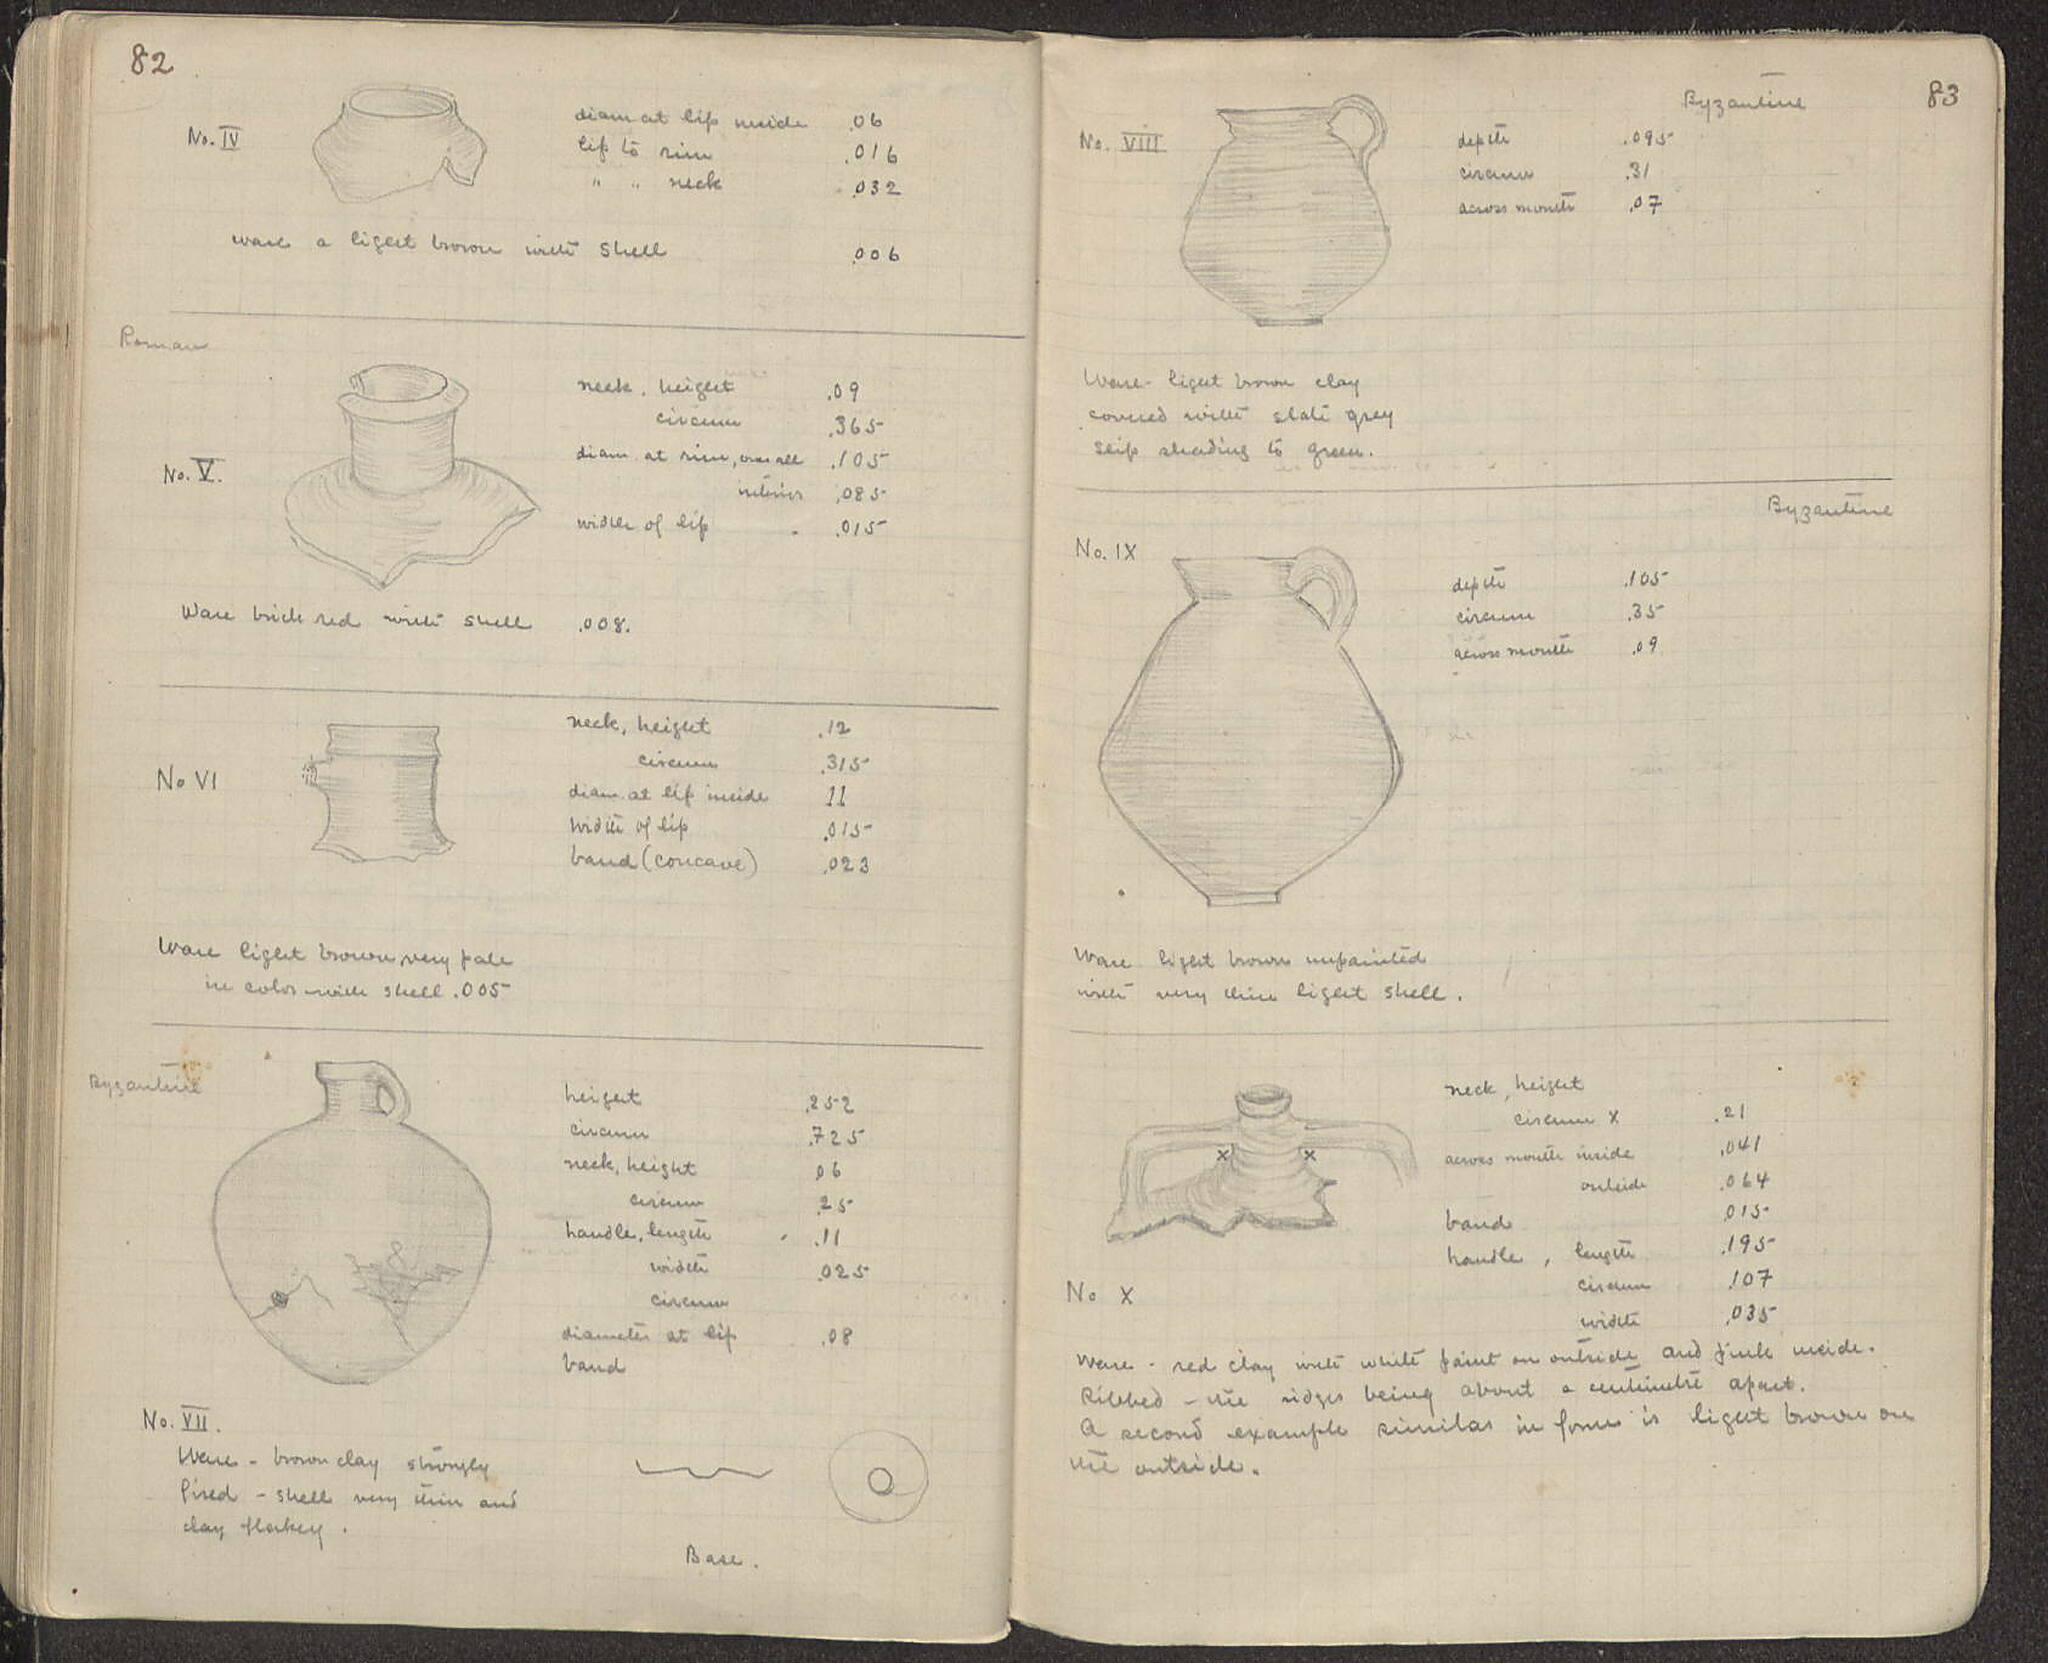 82
No. IV
diam at lip inside .06
lip to rim .016
" " neck .032
ware a light brown with shell .006
Roman
No. V.
neck, height .09
circum .365
diam. at rim, overall .105
interior .085
width of lip .015
Ware brick red with shell .008.
No VI
neck, height .12
circum .315
diam. at lip inside 11
width of lip .015
band (concave) .023
Ware light brown, very pale
in color with shell .005
Byzantine
height .252
circum .725
neck, height 06
circum 25
handle, length .11
width .025
circum
diameter at lip .08
band
No. VII.
Ware - brown clay strongly
fired - shell very thin and
clay flakey.
Base.
83
Byzantine
No. VIII
depth .095
circum .31
across mouth .07
Ware - light brown clay
covered with slate grey
slip shading to green.
Byzantine
No. IX
depth .105
circum .35
across mouth .09
Ware light brown unpainted
with very thin light shell.
neck, height
circum x .21
across mouth inside .041
outside .064
band 015
handle, length .195
circum 107
width .035
x x
No X
Ware - red clay with white paint on outside and pink inside.
Ribbed - the ridges being about a centimetre apart.
A second example similar in form is light brown on
the outside.